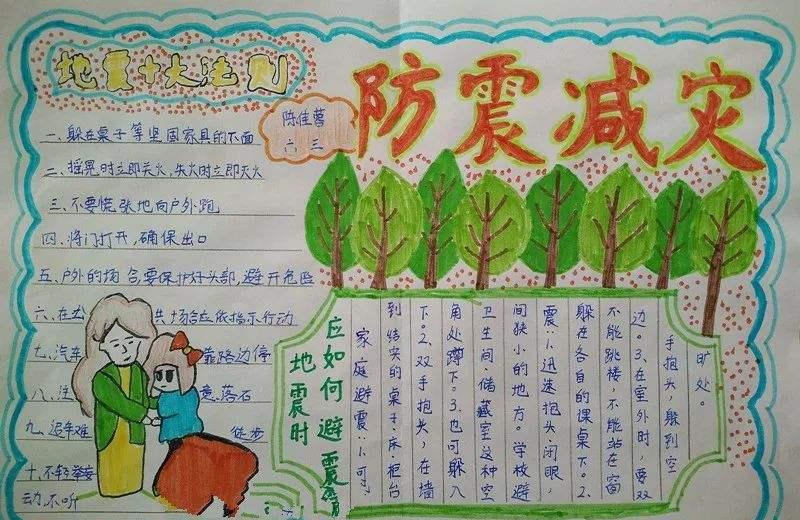 地震十大法则
防震减灾
陈佳
六 三
一、躲在桌子等坚固家具的下面
二、摇晃时立即关火,失火时立即灭火
三、不要慌张地向户外跑
四、将门打开,确保出口
五、户外的场合要保护好头部,避开危险
六、在 共场合应依指示行动
七、汽车 靠路边停
八、注 意落石
九、避难 徒步
十、不轻举妄
动,不听
地震时
应如何避震
家庭避震:1、可
到结实的桌子、床柜台
下。2、双手抱头,在墙
角处蹲下。3、也可躲入
卫生间、储藏室这种空
间狭小的地方。学校避
震:1、迅速抱头、闭眼,
躲在各自的课桌下。2、
不能跳楼,不能站在窗
边。3、在室外时,要双
手抱头,躲到空
旷处。